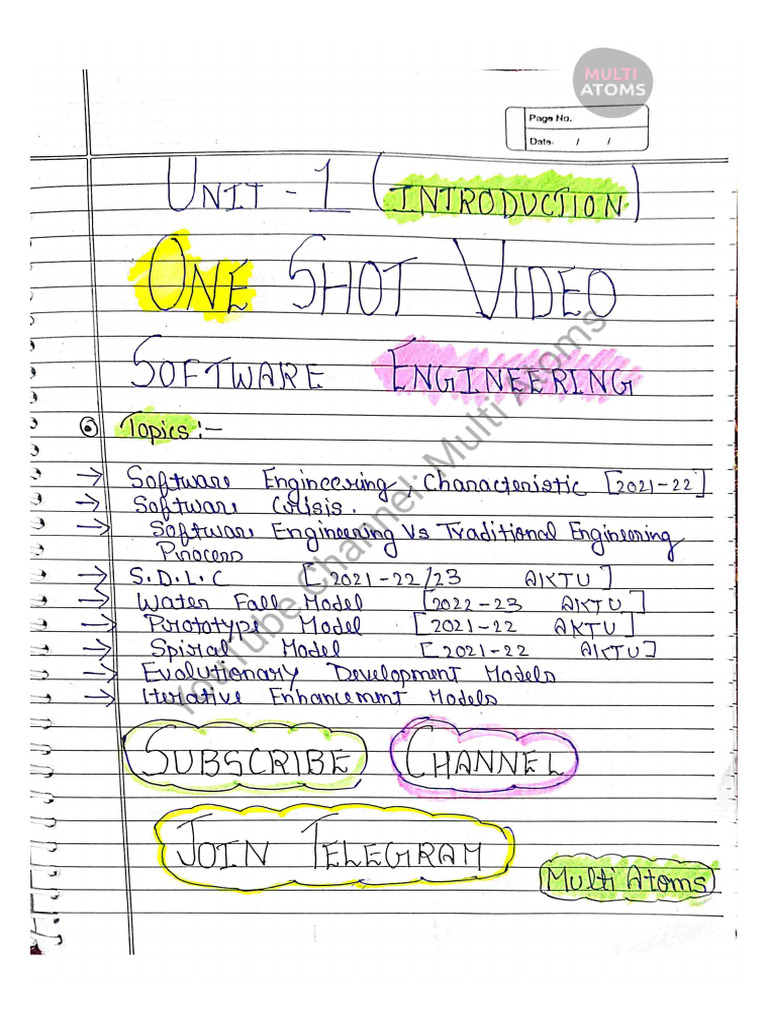 MULTI
ATOMS
Page No.
Date: / /
UNIT - 1 (INTRODUCTION)
ONE SHOT VIDEO
SOFTWARE ENGINEERING
Topics :-
→ Software Engineering, Characteristic [2021-22]
→ Software Crisis.
→ Software Engineering Vs Traditional Engineering
Process
→ S.D.L.C [2021-22/23 AKTU]
→ Water Fall Model [2022-23 AKTU]
→ Prototype Model [2021-22 AKTU]
→ Spiral Model [2021-22 AKTU]
→ Evolutionary Development Models
→ Iterative Enhancement Models
YouTube Channel: Multi Atoms
SUBSCRIBE CHANNEL
JOIN TELEGRAM
Multi Atoms